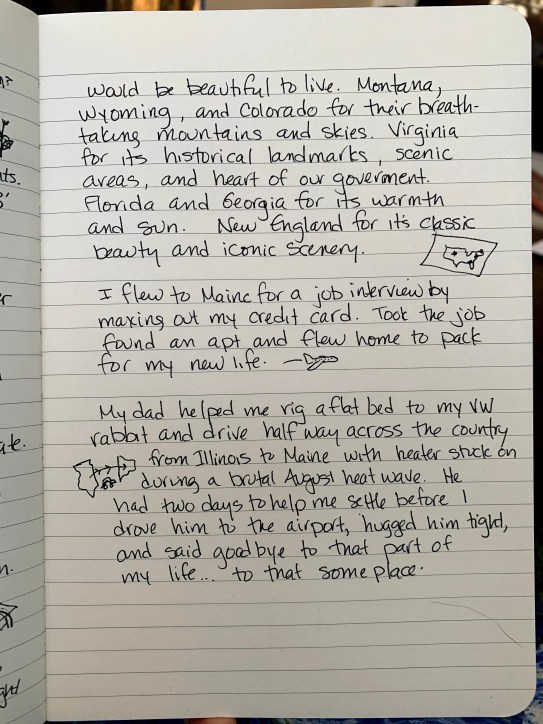 n?
would be beautiful to live. Montana,
Wyoming, and Colorado for their breath-
taking mountains and skies. Virginia
for its historical landmarks, scenic
nts.
areas, and heart of our goverment.
Florida and Georgia for its warmth
and sun. New England for its classic
beauty and iconic scenery.
er
I flew to Maine for a job interview by
maxing out my credit card. Took the job
found an apt and flew home to pack
for my new life.
My dad helped me rig a flat bed to my VW
rabbit and drive half way across the country
ate.
from Illinois to Maine with heater stuck on
during a brutal August heat wave. He
had two days to help me settle before I
drove him to the airport, hugged him tight,
and said goodbye to that part of
n.
my life... to that some place.
ght